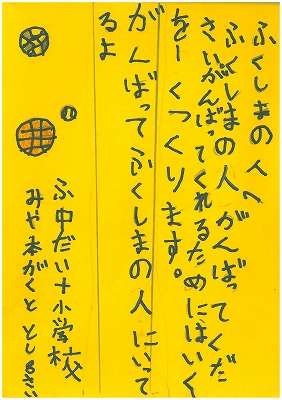 ふくしまの人へ
ふくしまの人がんばってくだ
さいがんばってくれるためにはいく
を一くつくります。
がんばってふくしまの人にいって
るよ
ふ中だい十小学校
みや本がくと とし8さい